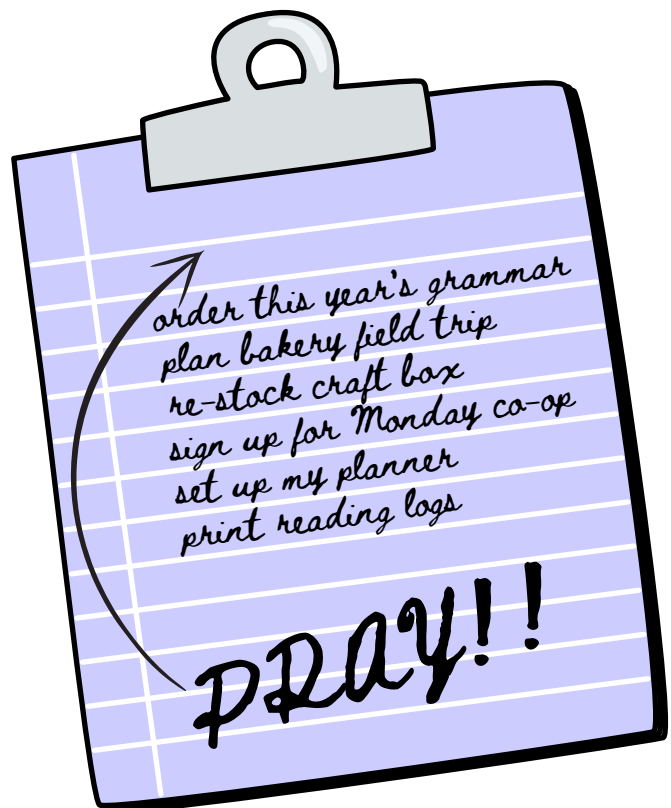 order this year's grammar
plan bakery field trip
re-stock craft box
sign up for Monday co-op
set up my planner
print reading logs
PRAY!!